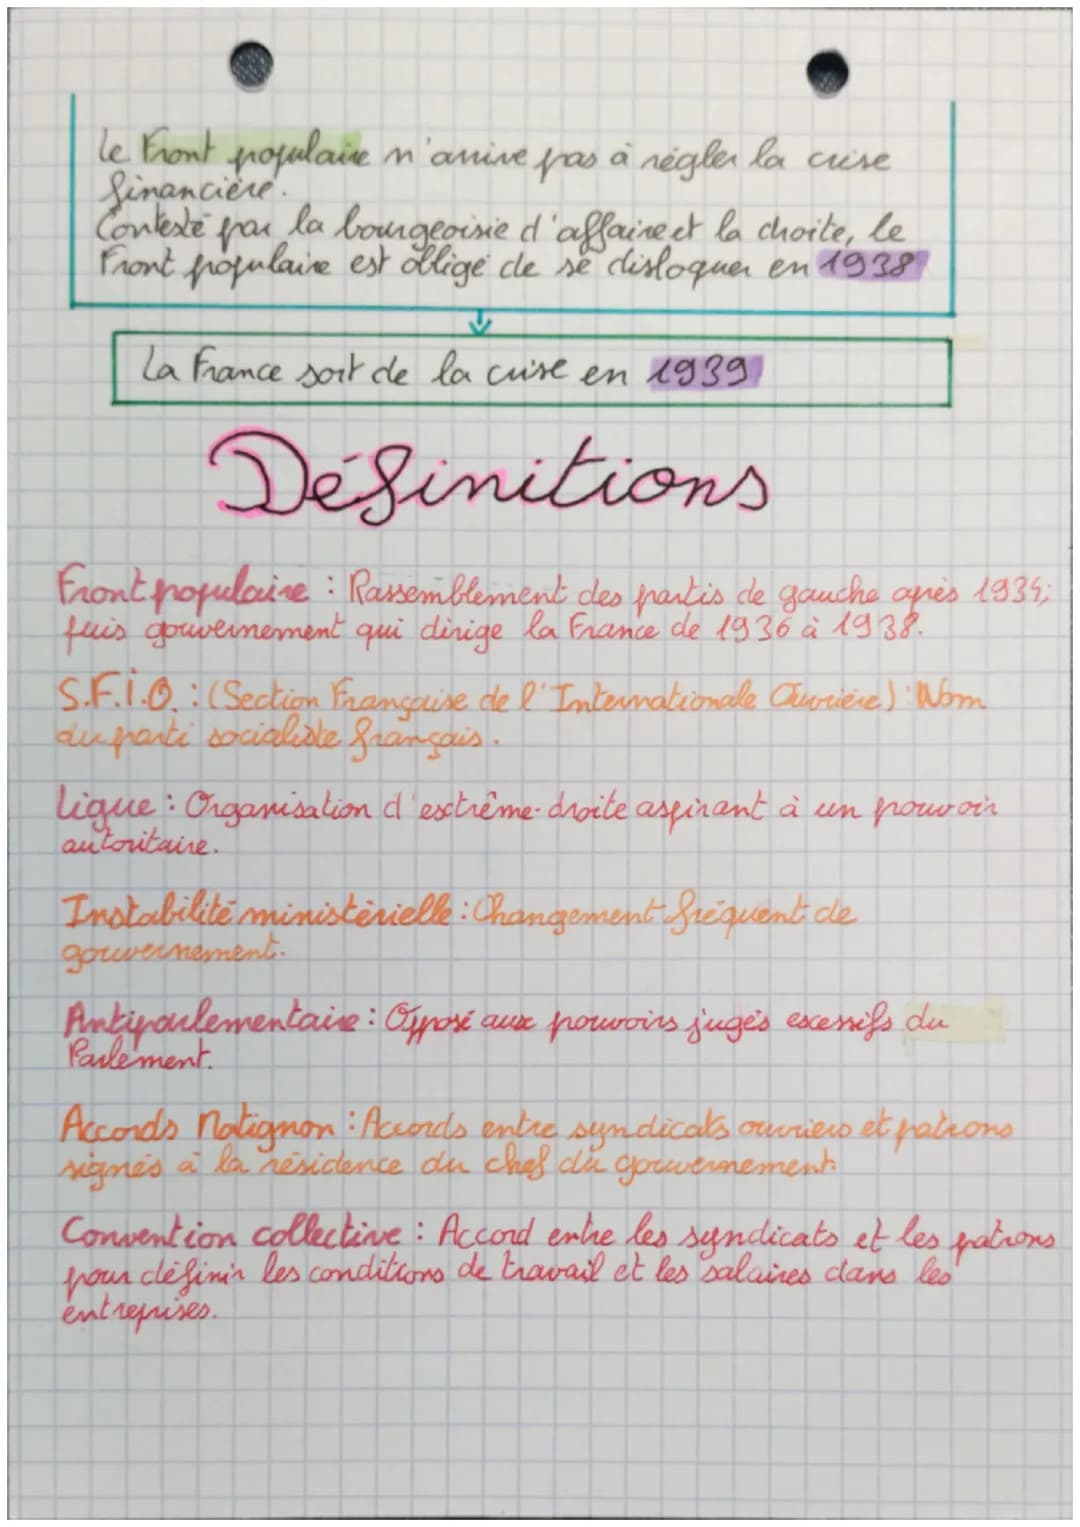 Le Front populaire n'arrive pas à régler la crise
financière.
Contesté par la bourgeoisie d'affaire et la droite, le
Front populaire est obligé de se disloquer en 1938
La France sort de la crise en 1939
Définitions
Front populaire : Rassemblement des partis de gauche après 1934;
puis gouvernement qui dirige la France de 1936 à 1938.
S.F.I.O. : (Section Française de l'Internationale Ouvrière) : Nom
du parti socialiste français.
Ligue : Organisation d'extrême-droite aspirant à un pouvoir
autoritaire.
Instabilité ministérielle : Changement fréquent de
gouvernement.
Antiparlementaire : Opposé aux pouvoirs jugés excessifs du
Parlement.
Accords Matignon : Accords entre syndicats ouvriers et patrons
signés à la résidence du chef du gouvernement.
Convention collective : Accord entre les syndicats et les patrons
pour définir les conditions de travail et les salaires dans les
entreprises.